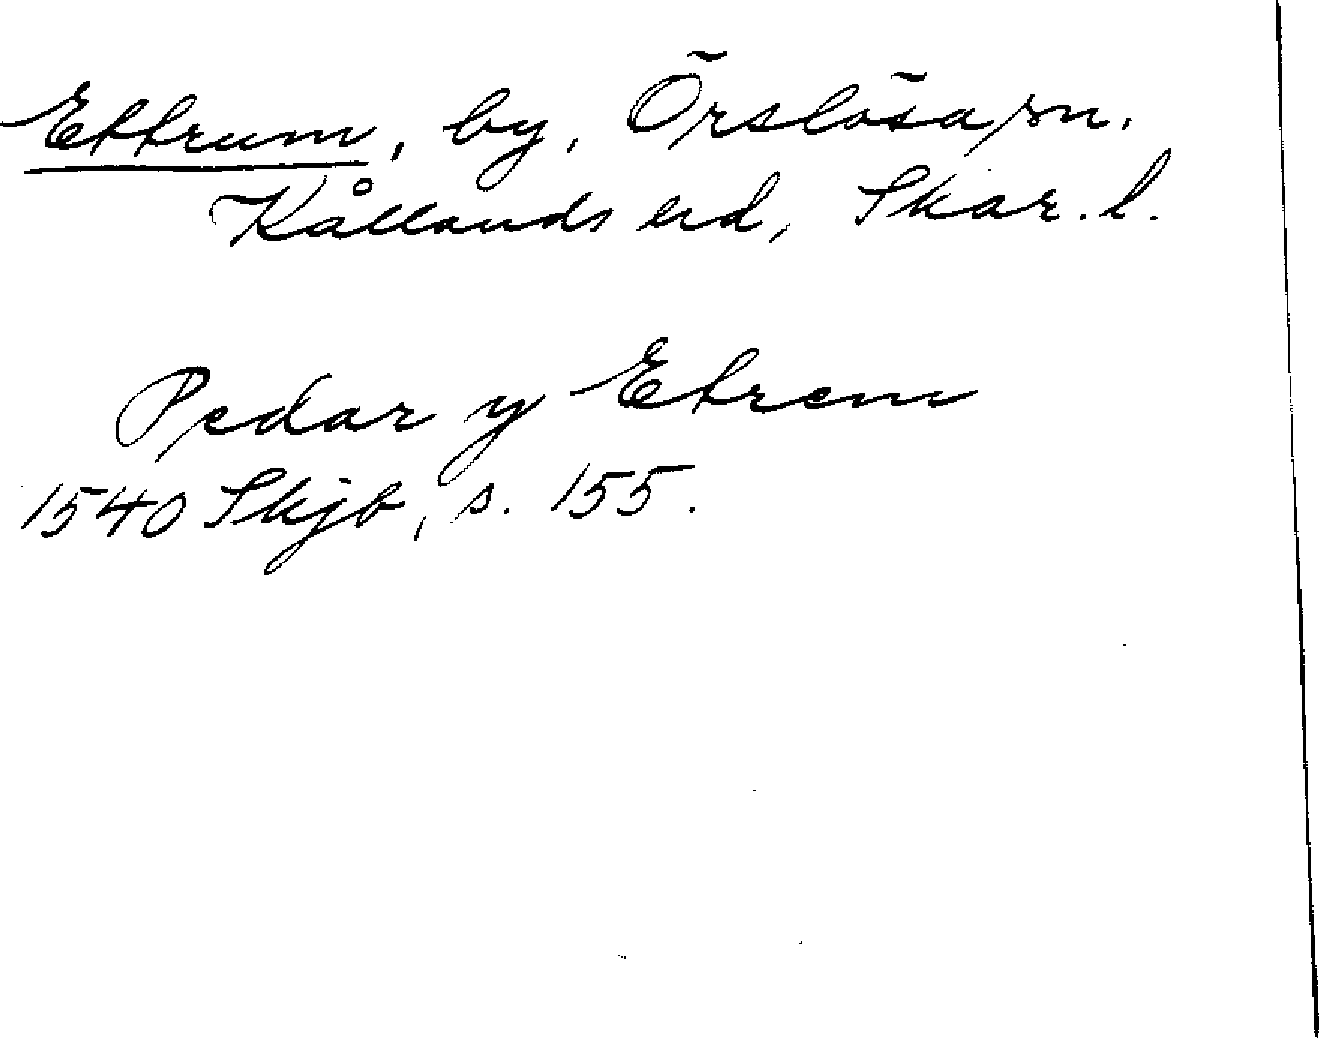 Ettrum, by, Örslösa sn.
Kållands hd, Skar. l.
Pedar y Etrem
1540 Skjb, s. 155.